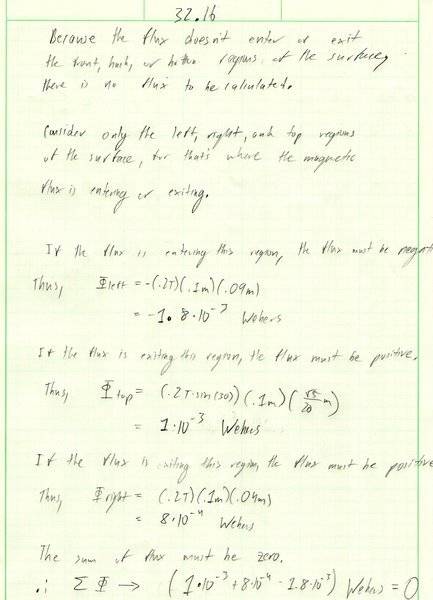 32.16
Because the flux doesn't enter or exit
the front, back, or bottom regions of the surface,
there is no flux to be calculated.
Consider only the left, right, and top regions
of the surface, for that's where the magnetic
flux is entering or exiting.
If the flux is entering this region, the flux must be negati
Thus, Φleft = -(.2T)(.1m)(.09m)
= -1.8·10⁻³ Webers
If the flux is exiting this region, the flux must be positive.
Thus, Φtop = (.2T·sin(30))(.1m)(m)
= 1·10⁻³ Webers
If the flux is exiting this region, the flux must be positive
Thus, Φright = (.2T)(.1m)(.04m)
= 8·10⁻⁴ Webers
The sum of flux must be zero.
∴ ΣΦ → (1·10⁻³ + 8·10⁻⁴ - 1.8·10⁻³) Webers = 0